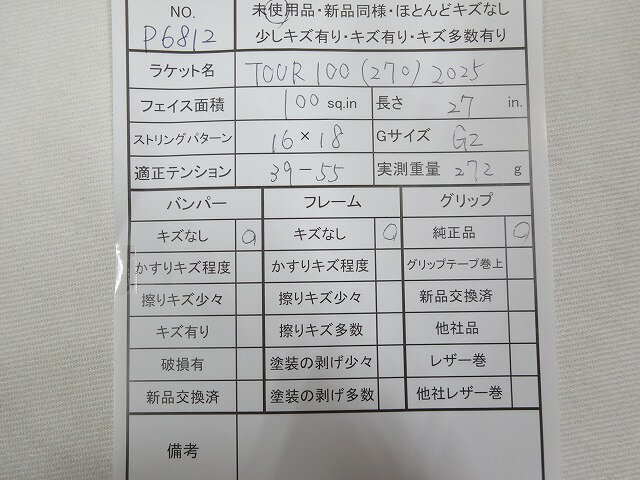 NO. 未使用品・新品同様・ほとんどキズなし
P6812 少しキズ有り・キズ有り・キズ多数有り
ラケット名 TOUR 100 (270) 2025
フェイス面積 100 sq.in 長さ 27 in.
ストリングパターン 16 × 18 Gサイズ G2
適正テンション 39-55 実測重量 272 g
バンパー フレーム グリップ
キズなし ○ キズなし ○ 純正品 ○
かすりキズ程度 かすりキズ程度 グリップテープ巻上
擦りキズ少々 擦りキズ少々 新品交換済
キズ有り 擦りキズ多数 他社品
破損有 塗装の剥げ少々 レザー巻
新品交換済 塗装の剥げ多数 他社レザー巻
備考